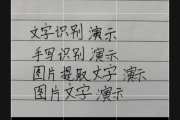 文字识别 演示
手写识别 演示
图片提取文字 演示
图片文字 演示